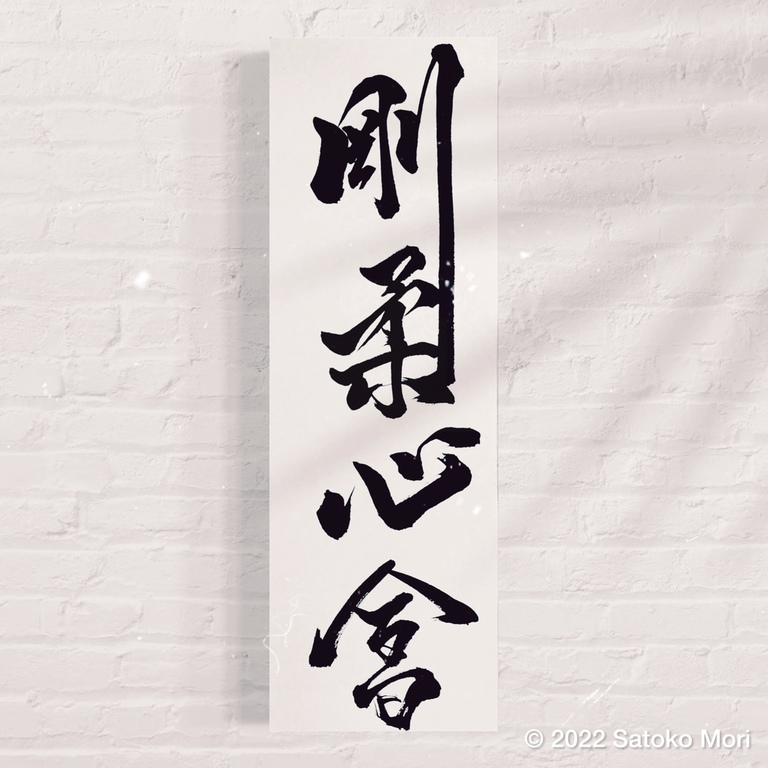 剛柔心會
© 2022 Satoko Mori